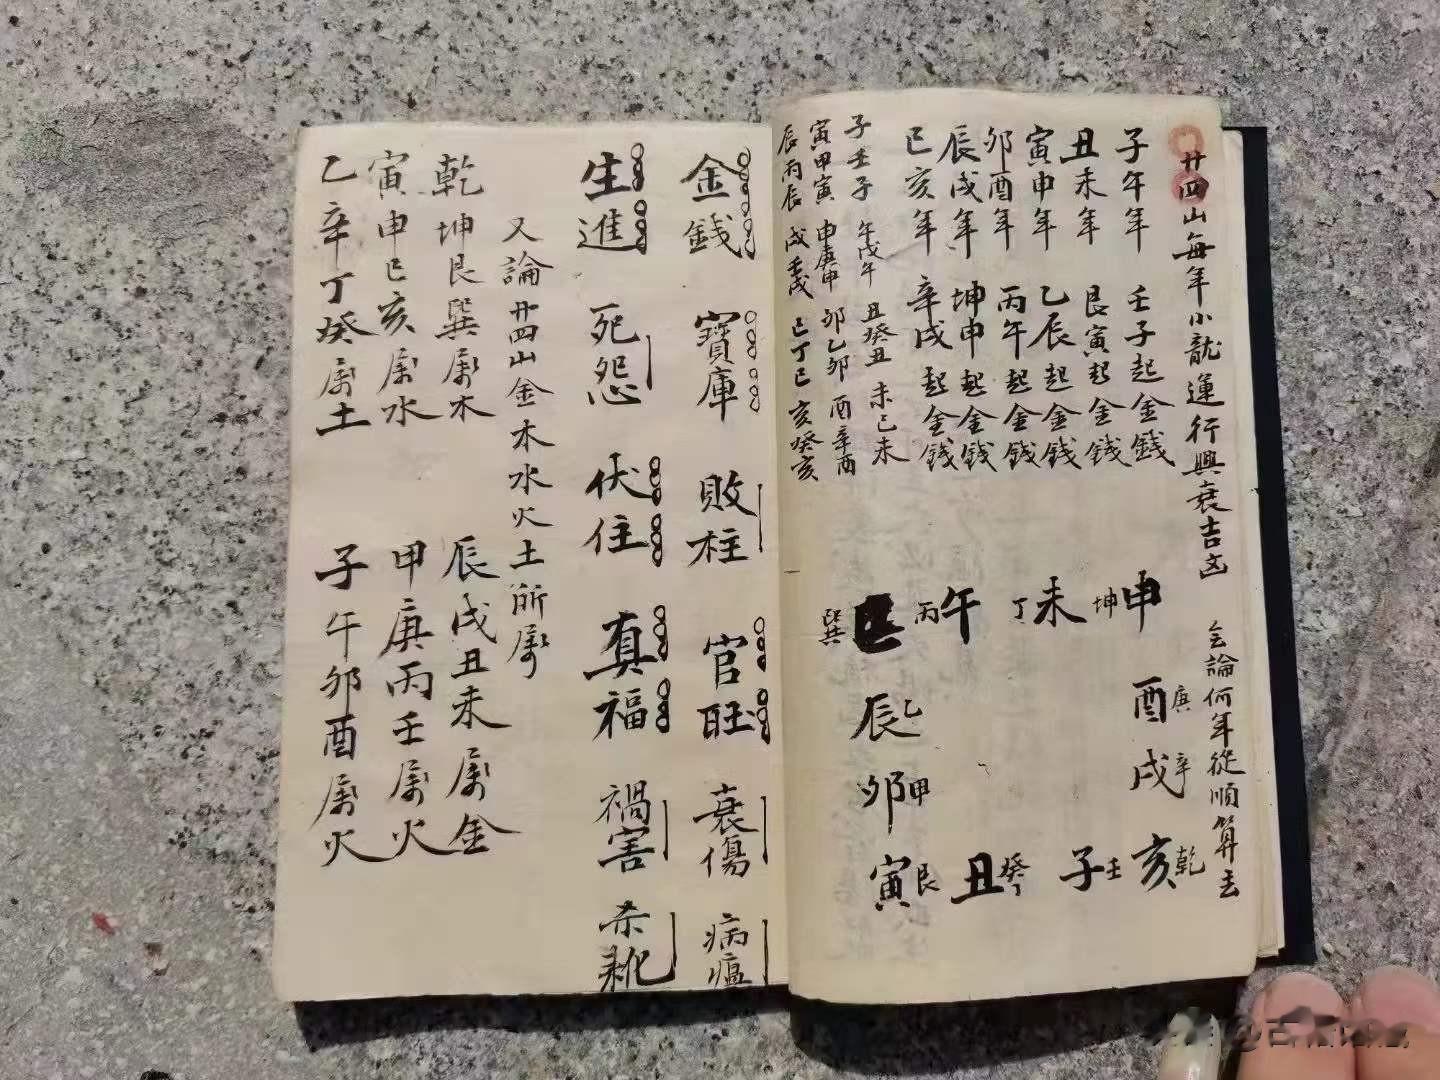 廿四山每年小龍運行興衰吉凶　仝論何年從順算去
子午年　壬子起金錢
丑未年　艮寅起金錢
寅申年　乙辰起金錢
卯酉年　丙午起金錢
辰戌年　坤申起金錢
巳亥年　辛戌起金錢
子壬子　午戊午　丑癸丑　未己未
寅甲寅　申庚申　卯乙卯　酉辛酉
辰丙辰　戌壬戌　巳丁巳　亥癸亥
申　坤　未　丁　午　丙　巳　巽
酉　庚　辰　乙
戌　辛　卯　甲
亥　乾　子　壬　丑　癸　寅　艮
金錢　寶庫　敗柱　官旺　衰傷　病瘟
生進　死怨　伏住　真福　禍害
又論廿四山金木水火土所屬
乾坤艮巽屬木　辰戌丑未屬金
寅申巳亥屬水　甲庚丙壬屬火
乙辛丁癸屬土　子午卯酉屬火